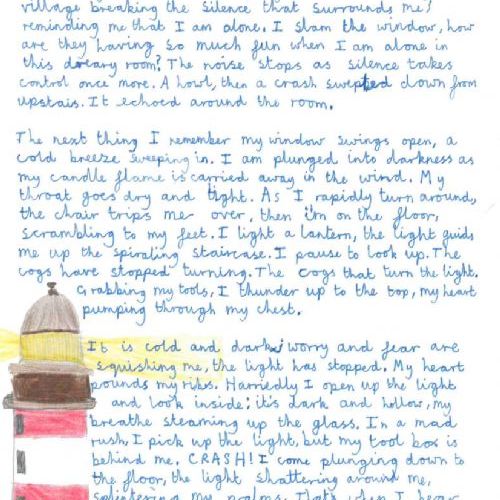 village breaking the silence that surrounds me,
reminding me that I am alone. I slam the window, how
are they having so much fun when I am alone in
this dreary room? The noise stops as silence takes
control once more. A howl, then a crash swepted down from
upstais. It echoed around the room.
The next thing I remember my window swings open, a
cold breeze sweeping in. I am plunged into darkness as
my candle flame is carried away in the wind. My
throat goes dry and tight. As I rapidly turn around,
the chair trips me over, then i'm on the floor,
scrambling to my feet. I light a lantern, the light guids
me up the spiraling staircase. I pause to look up. The
cogs have stopped turning. The cogs that turn the light.
Grabbing my tools, I thunder up to the top, my heart
pumping through my chest.
It is cold and dark, worry and fear are
squishing me, the light has stopped. My heart
pounds my ribs. Harriedly I open up the light
and look inside; it's dark and hollow, my
breathe steaming up the glass. In a mad
rush, I pick up the light, but my tool box is
behind me. CRASH! I come plunging down to
the floor, the light shattering around me,
splintering my palms. That's when I hear